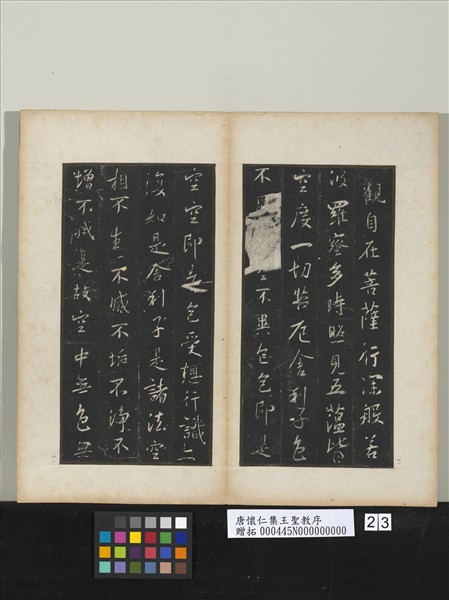 觀自在菩薩行深般若
波羅蜜多時照見五蘊皆
空度一切苦厄舍利子色
不不異色色即是
空空即是色受想行識亦
復如是舍利子是諸法空
相不生不滅不垢不淨不
增不減是故空中無色無
唐懷仁集王聖教序
贈拓 000445N000000000
23